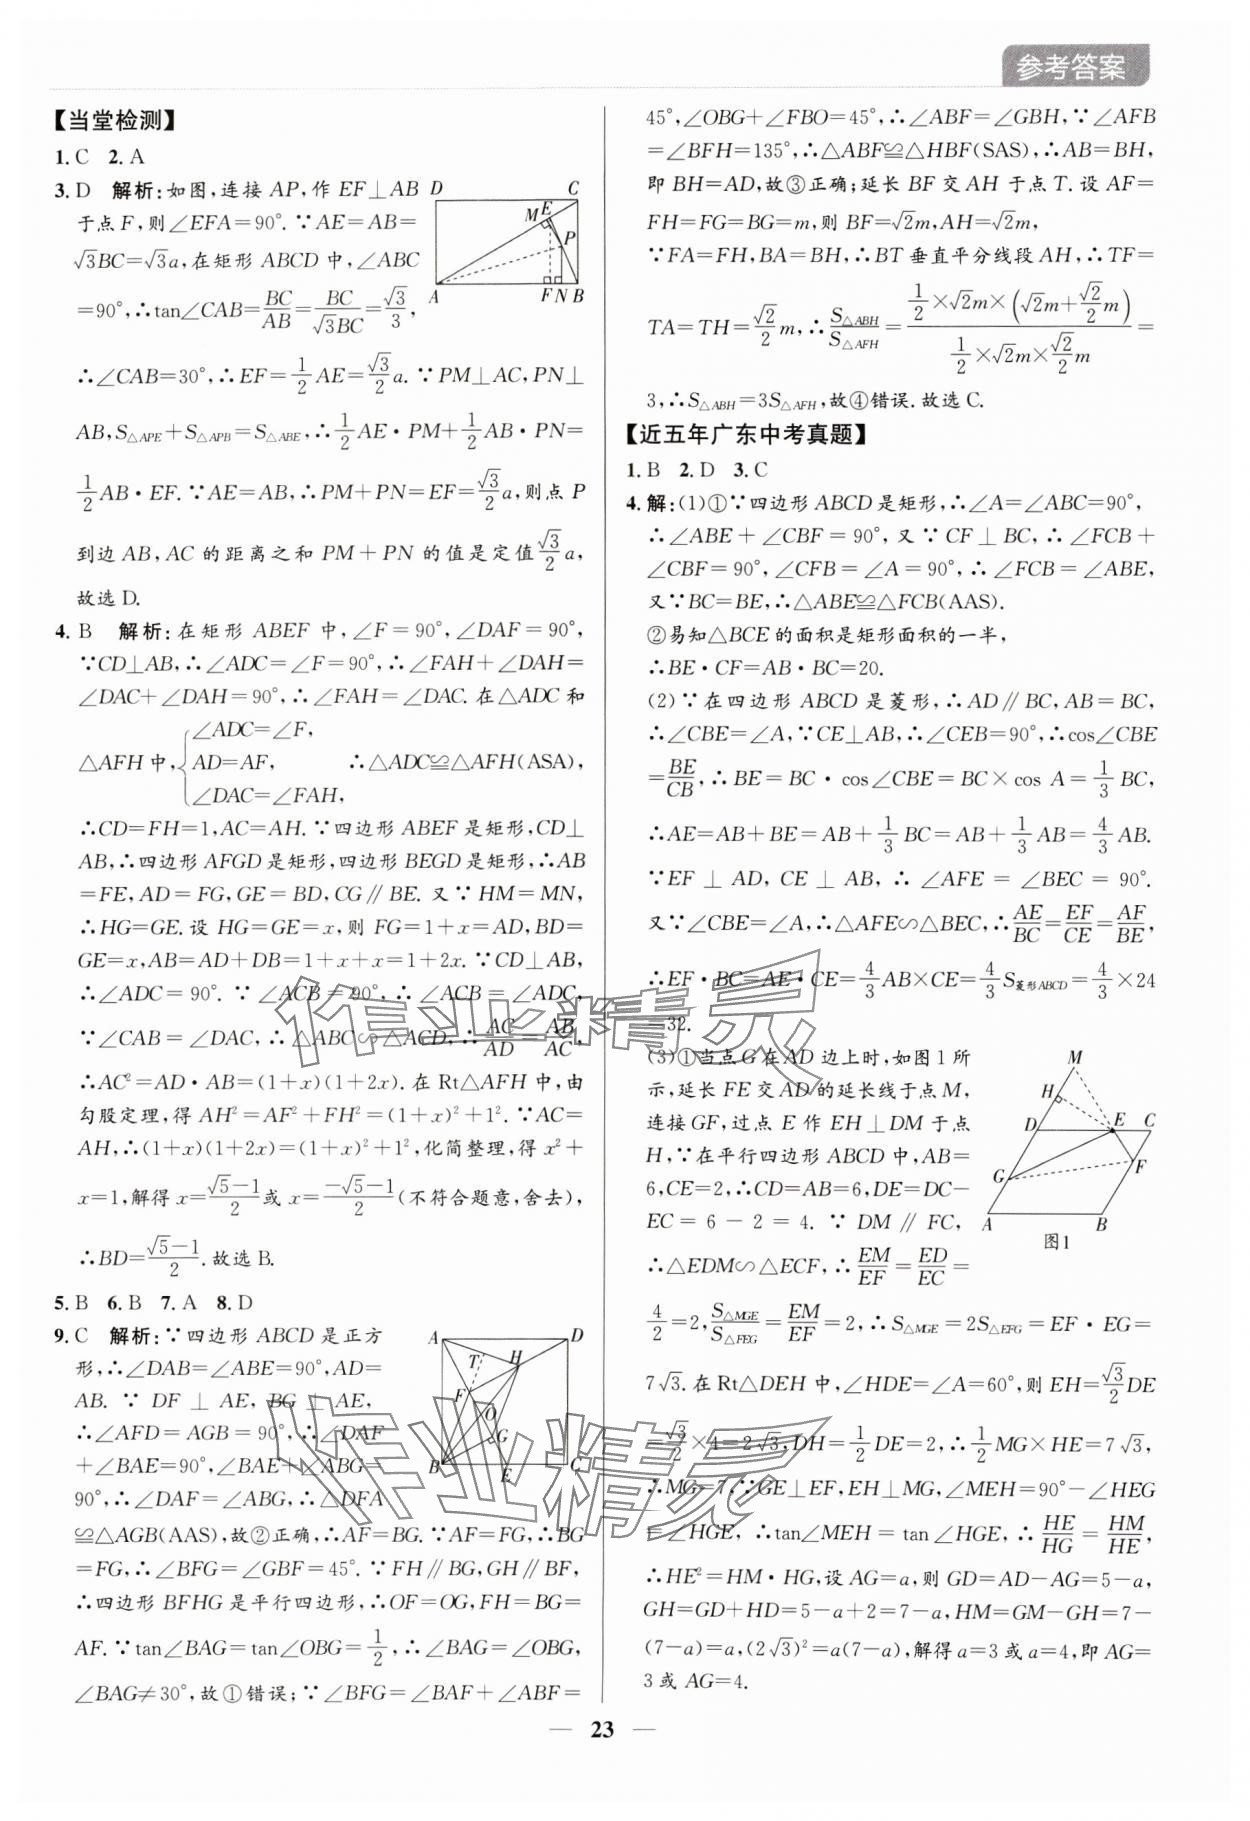 参考答案
【当堂检测】
1. C 2. A
3. D 解析:如图,连接 AP,作 EF⊥AB
于点 F,则∠EFA=90°. ∵AE=AB=
√3BC=√3a,在矩形 ABCD 中,∠ABC
=90°,∴tan∠CAB=BC/AB=BC/√3BC=√3/3,
∴∠CAB=30°,∴EF=1/2AE=√3/2a. ∵PM⊥AC,PN⊥
AB,S△APE+S△APB=S△ABE,∴1/2AE·PM+1/2AB·PN=
1/2AB·EF. ∵AE=AB,∴PM+PN=EF=√3/2a,则点 P
到边 AB,AC 的距离之和 PM+PN 的值是定值√3/2a,
故选 D.
D C M E P A F N B
4. B 解析:在矩形 ABEF 中,∠F=90°,∠DAF=90°,
∵CD⊥AB,∴∠ADC=∠F=90°,∴∠FAH+∠DAH=
∠DAC+∠DAH=90°,∴∠FAH=∠DAC. 在△ADC 和
△AFH 中,{∠ADC=∠F,
AD=AF, ∴△ADC≌△AFH(ASA),
∠DAC=∠FAH,
∴CD=FH=1,AC=AH. ∵四边形 ABEF 是矩形,CD⊥
AB,∴四边形 AFGD 是矩形,四边形 BEGD 是矩形,∴AB
=FE,AD=FG,GE=BD,CG∥BE. 又∵HM=MN,
∴HG=GE. 设 HG=GE=x,则 FG=1+x=AD,BD=
GE=x,AB=AD+DB=1+x+x=1+2x. ∵CD⊥AB,
∴∠ADC=90°. ∵∠ACB=90°,∴∠ACB=∠ADC,
∵∠CAB=∠DAC,∴△ABC∽△ACD,∴AC/AD=AB/AC,
∴AC²=AD·AB=(1+x)(1+2x). 在 Rt△AFH 中,由
勾股定理,得 AH²=AF²+FH²=(1+x)²+1². ∵AC=
AH,∴(1+x)(1+2x)=(1+x)²+1²,化简整理,得 x²+
x=1,解得 x=(√5-1)/2或 x=(-√5-1)/2(不符合题意,舍去),
∴BD=(√5-1)/2. 故选 B.
5. B 6. B 7. A 8. D
9. C 解析:∵四边形 ABCD 是正方
形,∴∠DAB=∠ABE=90°,AD=
AB. ∵ DF⊥AE, BG⊥AE,
∴∠AFD=AGB=90°,∴∠DAF
+∠BAE=90°,∠BAE+∠ABG=
90°,∴∠DAF=∠ABG,∴△DFA
≌△AGB(AAS),故②正确,∴AF=BG. ∵AF=FG,∴BG
=FG,∴∠BFG=∠GBF=45°. ∵FH∥BG,GH∥BF,
∴四边形 BFHG 是平行四边形,∴OF=OG,FH=BG=
AF. ∵tan∠BAG=tan∠OBG=1/2,∴∠BAG=∠OBG,
∠BAG≠30°,故①错误;∵∠BFG=∠BAF+∠ABF=
A D T H F O G B E C
45°,∠OBG+∠FBO=45°,∴∠ABF=∠GBH,∵∠AFB
=∠BFH=135°,∴△ABF≌△HBF(SAS),∴AB=BH,
即 BH=AD,故③正确;延长 BF 交 AH 于点 T. 设 AF=
FH=FG=BG=m,则 BF=√2m,AH=√2m,
∵FA=FH,BA=BH,∴BT 垂直平分线段 AH,∴TF=
TA=TH=√2/2m,∴S△ABH/S△AFH=(1/2×√2m×(√2m+√2/2m))/(1/2×√2m×√2/2m)=
3,∴S△ABH=3S△AFH,故④错误. 故选 C.
【近五年广东中考真题】
1. B 2. D 3. C
4. 解:(1)①∵四边形 ABCD 是矩形,∴∠A=∠ABC=90°,
∴∠ABE+∠CBF=90°,又∵CF⊥BC,∴∠FCB+
∠CBF=90°,∠CFB=∠A=90°,∴∠FCB=∠ABE,
又∵BC=BE,∴△ABE≌△FCB(AAS).
②易知△BCE 的面积是矩形面积的一半,
∴BE·CF=AB·BC=20.
(2)∵在四边形 ABCD 是菱形,∴AD∥BC,AB=BC,
∴∠CBE=∠A,∵CE⊥AB,∴∠CEB=90°,∴cos∠CBE
=BE/CB,∴BE=BC·cos∠CBE=BC×cos A=1/3BC,
∴AE=AB+BE=AB+1/3BC=AB+1/3AB=4/3AB.
∵EF⊥AD,CE⊥AB,∴∠AFE=∠BEC=90°.
又∵∠CBE=∠A,∴△AFE∽△BEC,∴AE/BC=EF/CE=AF/BE,
∴EF·BC=AE·CE=4/3AB×CE=4/3S菱形ABCD=4/3×24
=32.
(3)①当点 G 在 AD 边上时,如图 1 所
示,延长 FE 交 AD 的延长线于点 M,
连接 GF,过点 E 作 EH⊥DM 于点
H,∵在平行四边形 ABCD 中,AB=
6,CE=2,∴CD=AB=6,DE=DC-
EC=6-2=4. ∵DM∥FC,
∴△EDM∽△ECF,∴EM/EF=ED/EC=
4/2=2,S△MGE/S△FEG=EM/EF=2,∴S△MGE=2S△EFG=EF·EG=
7√3. 在 Rt△DEH 中,∠HDE=∠A=60°,则 EH=√3/2DE
=√3/2×4=2√3,DH=1/2DE=2,∴1/2MG×HE=7√3,
∴MG=7,∵GE⊥EF,EH⊥MG,∠MEH=90°-∠HEG
=∠HGE,∴tan∠MEH=tan∠HGE,∴HE/HG=HM/HE,
∴HE²=HM·HG,设 AG=a,则 GD=AD-AG=5-a,
GH=GD+HD=5-a+2=7-a,HM=GM-GH=7-
(7-a)=a,(2√3)²=a(7-a),解得 a=3 或 a=4,即 AG=
3 或 AG=4.
M H D E C F G A B
图1
作业精灵
作业精灵
— 23 —